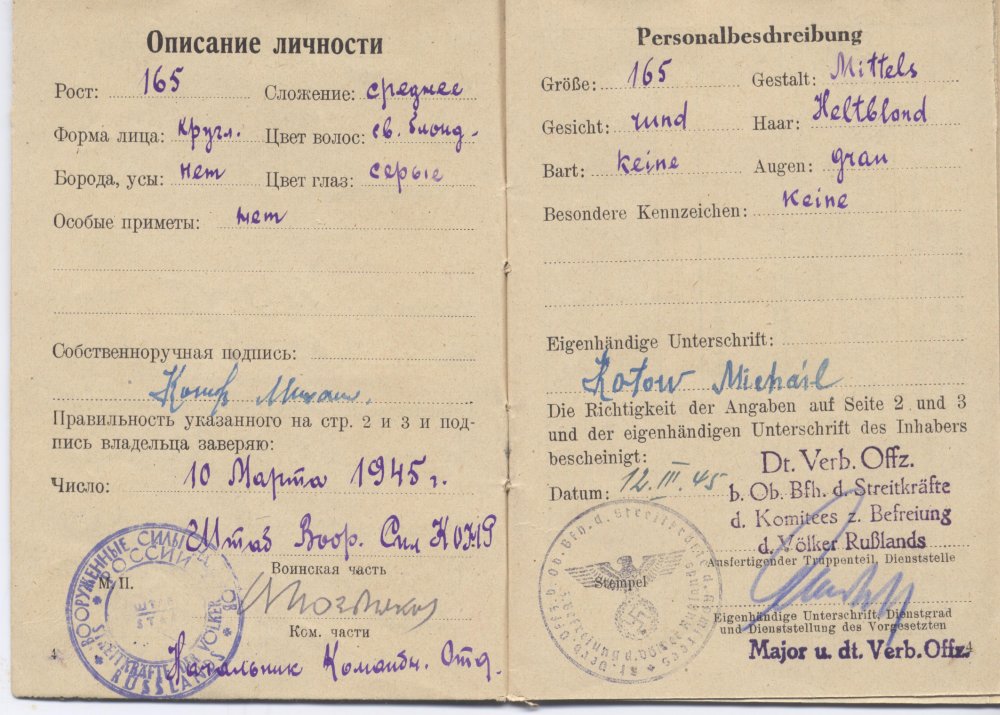 Описание личности
Рост: 165 Сложение: среднее
Форма лица: кругл. Цвет волос: св. блонд.
Борода, усы: нет Цвет глаз: серые
Особые приметы: нет
Собственноручная подпись:
Правильность указанного на стр. 2 и 3 и под-
пись владельца заверяю:
Число: 10 Марта 1945 г.
Штаб Воор. Сил КОНР
Воинская часть
М. П.
Ком. части
Начальник Командн. Отд.
4
ВООРУЖЕННЫЕ СИЛЫ
РОССИИ
STREITKRÄFTE DER VÖLKER
RUSSLANDS
Personalbeschreibung
Größe: 165 Gestalt: Mittels
Gesicht: rund Haar: Heltblond
Bart: keine Augen: grau
Besondere Kennzeichen: Keine
Eigenhändige Unterschrift:
Kotow Michail
Die Richtigkeit der Angaben auf Seite 2 und 3
und der eigenhändigen Unterschrift des Inhabers
bescheinigt:
Datum: 12. III. 45
Dt. Verb. Offz.
b. Ob. Bfh. d. Streitkräfte
d. Komitees z. Befreiung
d. Völker Rußlands
Ausfertigender Truppenteil, Dienststelle
Stempel
Eigenhändige Unterschrift, Dienstgrad
und Dienststellung des Vorgesetzten
Major u. dt. Verb. Offz.
4